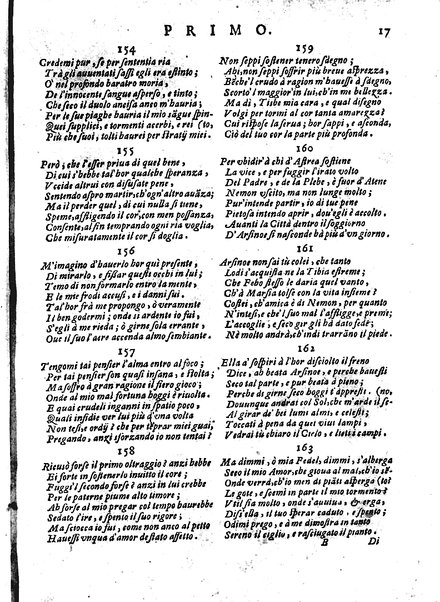 PRIMO. 17
154
Credemi pur, se per sententia ria
Trà gli auuentati sassi egli era estinto;
O nel profondo baratro moria,
De l'innocente sangue asperso, e tinto;
Che seco il duolo ancisa anco m'hauria;
Per le sue piaghe hauria il mio sãgue spin-
Quei supplici, e tormenti acerbi, e rei (to,
Più che suoi, tolti haurei per stratij miei.
155
Però; che l'esser priua di quel bene,
Di cui s'hebbe tal'hor qualche speranza,
Vccide altrui con disusate pene,
Sentendo aspro martir, ch'ogn'altro auãza;
Ma il perder quel, di cui nulla si tiene,
Speme, affligendo il cor, con men possanza,
Consente, al fin temprando ogni ria voglia,
Che misuratamente il cor si doglia.
156
M'imagino d'hauerlo hor quì presente,
Di mirarlo, e fissar questi occhi in lui;
Temo di non formarlo entro la mente,
E le mie frodi accusi, e i danni sui.
Tal'hor frà me propongo, è veramente
Il ben godermi; onde si ardente io fui,
S'egli à me rieda; ò girne sola errante,
Oue il suol'aere accenda almo sembiante.
157
Tengomi tai pensier l'alma entro al foco;
Per tai pensier son quasi insana, e stolta;
Ma soffro à gran ragione il fiero gioco;
Onde al mio mal fortuna hoggi è riuolta.
E quai crudeli inganni in spatio poco,
Quali insidie ver lui più d'una volta
Non tesi, ordij che per tirar miei guai;
Pregando, anzi sforzando io non tentai?
158
Ricusò forse il primo oltraggio è anzi hebbe
Ei forte in sostenerlo inuitto il core;
Fuggì'l secondo forse è anzi in lui crebbe
Per le paterne piume alto timore;
Ah forse al mio pregar col tempo haurebbe
Sedato l'ire, e spento il suo rigore;
Ma sciocca io fui, come non anco al petto
Hauessi vnqua d'amor destato affetto.
159
Non seppi sostener tenero sdegno;
Ahi, non seppi soffrir più breue asprezza,
Bèche'l crudo à ragion m'hauesse à sdegno,
Scorto'l maggior'in lui, ch'in me bellezza.
Ma dì, Tisbe mia cara, e qual disegno
Volgi per tormi al cor tanta amarezza?
Cui rispose la serua; hor sappi, e asconda,
Ciò del tuo cor la parte più profonda.
160
Per vbidir'à chi d'Astrea sostiene
La vice, e per fuggir l'irato volto
Del Padre, e de la Plebe, è fuor d'Atene
Nemon vscito, ma non lunge molto;
Pur'intende partir, io di tue pene
Pietosa intendo aprir, dou'egli è accolto.
Auanti la Città dentro il soggiorno
D'Arsinoe si nasconde bà più d'un giorno.
161
Arsinoe non sai tù colei, che tanto
Lodi s'acquista ne la Tibia estreme;
Che Febo stesso le daria quel vanto,
Ch'à Marsia tolse con la vita insieme?
Costei, ch'amica è di Nemon, per quanto
N'intesi, e che'l suo mal l'affligge, e preme;
L'accoglie, e seco gir gli hà dato fede;
Nè molto andrà, ch'indi trarrãno il piede.
162
Ella à sospiri à l'hor disciolto il freno
Dice, ah beata Arsinoe, e perche hauesti
Seco tal parte, e pur beata à pieno;
Perche di girne seco hoggi t'apprest. (no,
Douunque andrai col Sol, ch'm'arde il se-
Al girar de' bei lumi almi, e celesti;
Toccati à pena da quei viui lampi,
Vedrai tù chiaro il Cielo, e lieti i campi.
163
Ma dimmi, ò mia Pedel, dimmi, s'alberga
Seco il mio Amor, che gioua al mal, ch'io sí-
Onde verrà, ch'io men di piãti asperga (to?
Le gote, e scemi in parte il mio tormento?
Vsil sia molto, onde s'auuiua, & erga,
Diss'ella, il tuo sperar caduto, e spento;
Odimi prego, e à me dimostra in tanto
Sereno il ciglio, e rasciugato il pianto.
B Di